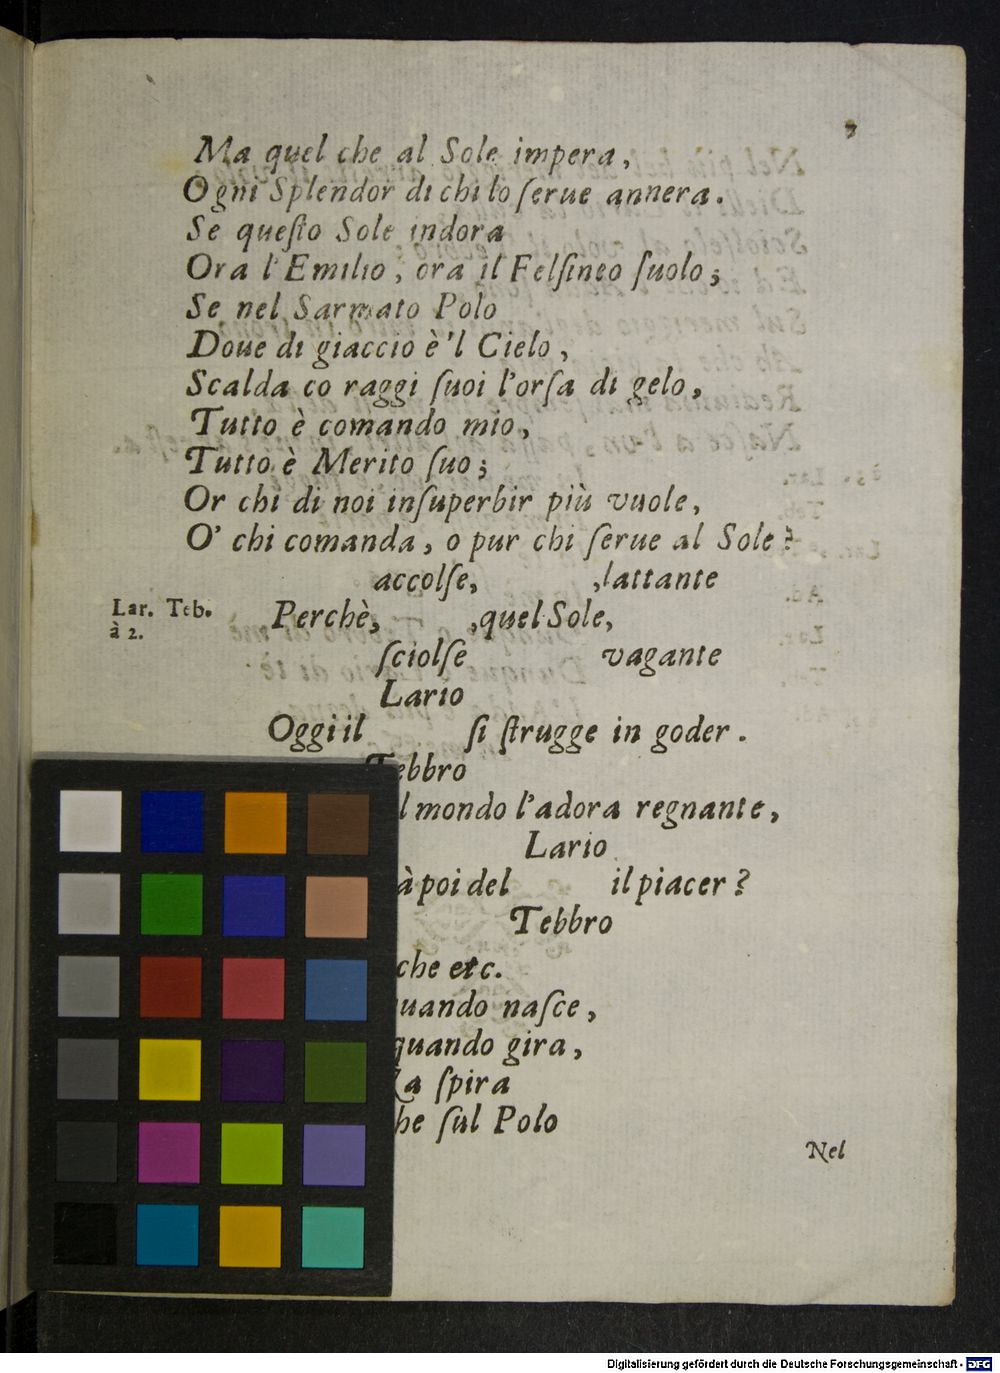 7
Ma quel che al Sole impera,
Ogni Splendor di chi lo ſerue annera.
Se queſto Sole indora
Ora l'Emilio, ora il Felſineo ſuolo;
Se nel Sarmato Polo
Doue di giaccio è 'l Cielo,
Scalda co raggi ſuoi l'orſa di gelo,
Tutto è comando mio,
Tutto è Merito ſuo;
Or chi di noi inſuperbir più vuole,
O' chi comanda, o pur chi ſerue al Sole?
accolſe, ,lattante
Lar. Teb. Perchè, ,quel Sole,
à 2.
ſciolſe vagante
Lario
Oggi il ſi ſtrugge in goder.
Tebbro
l mondo l'adora regnante,
Lario
à poi del il piacer?
Tebbro
che etc.
uando naſce,
quando gira,
La ſpira
he ſul Polo
Nel
Digitalisierung gefördert durch die Deutsche Forschungsgemeinschaft - DFG